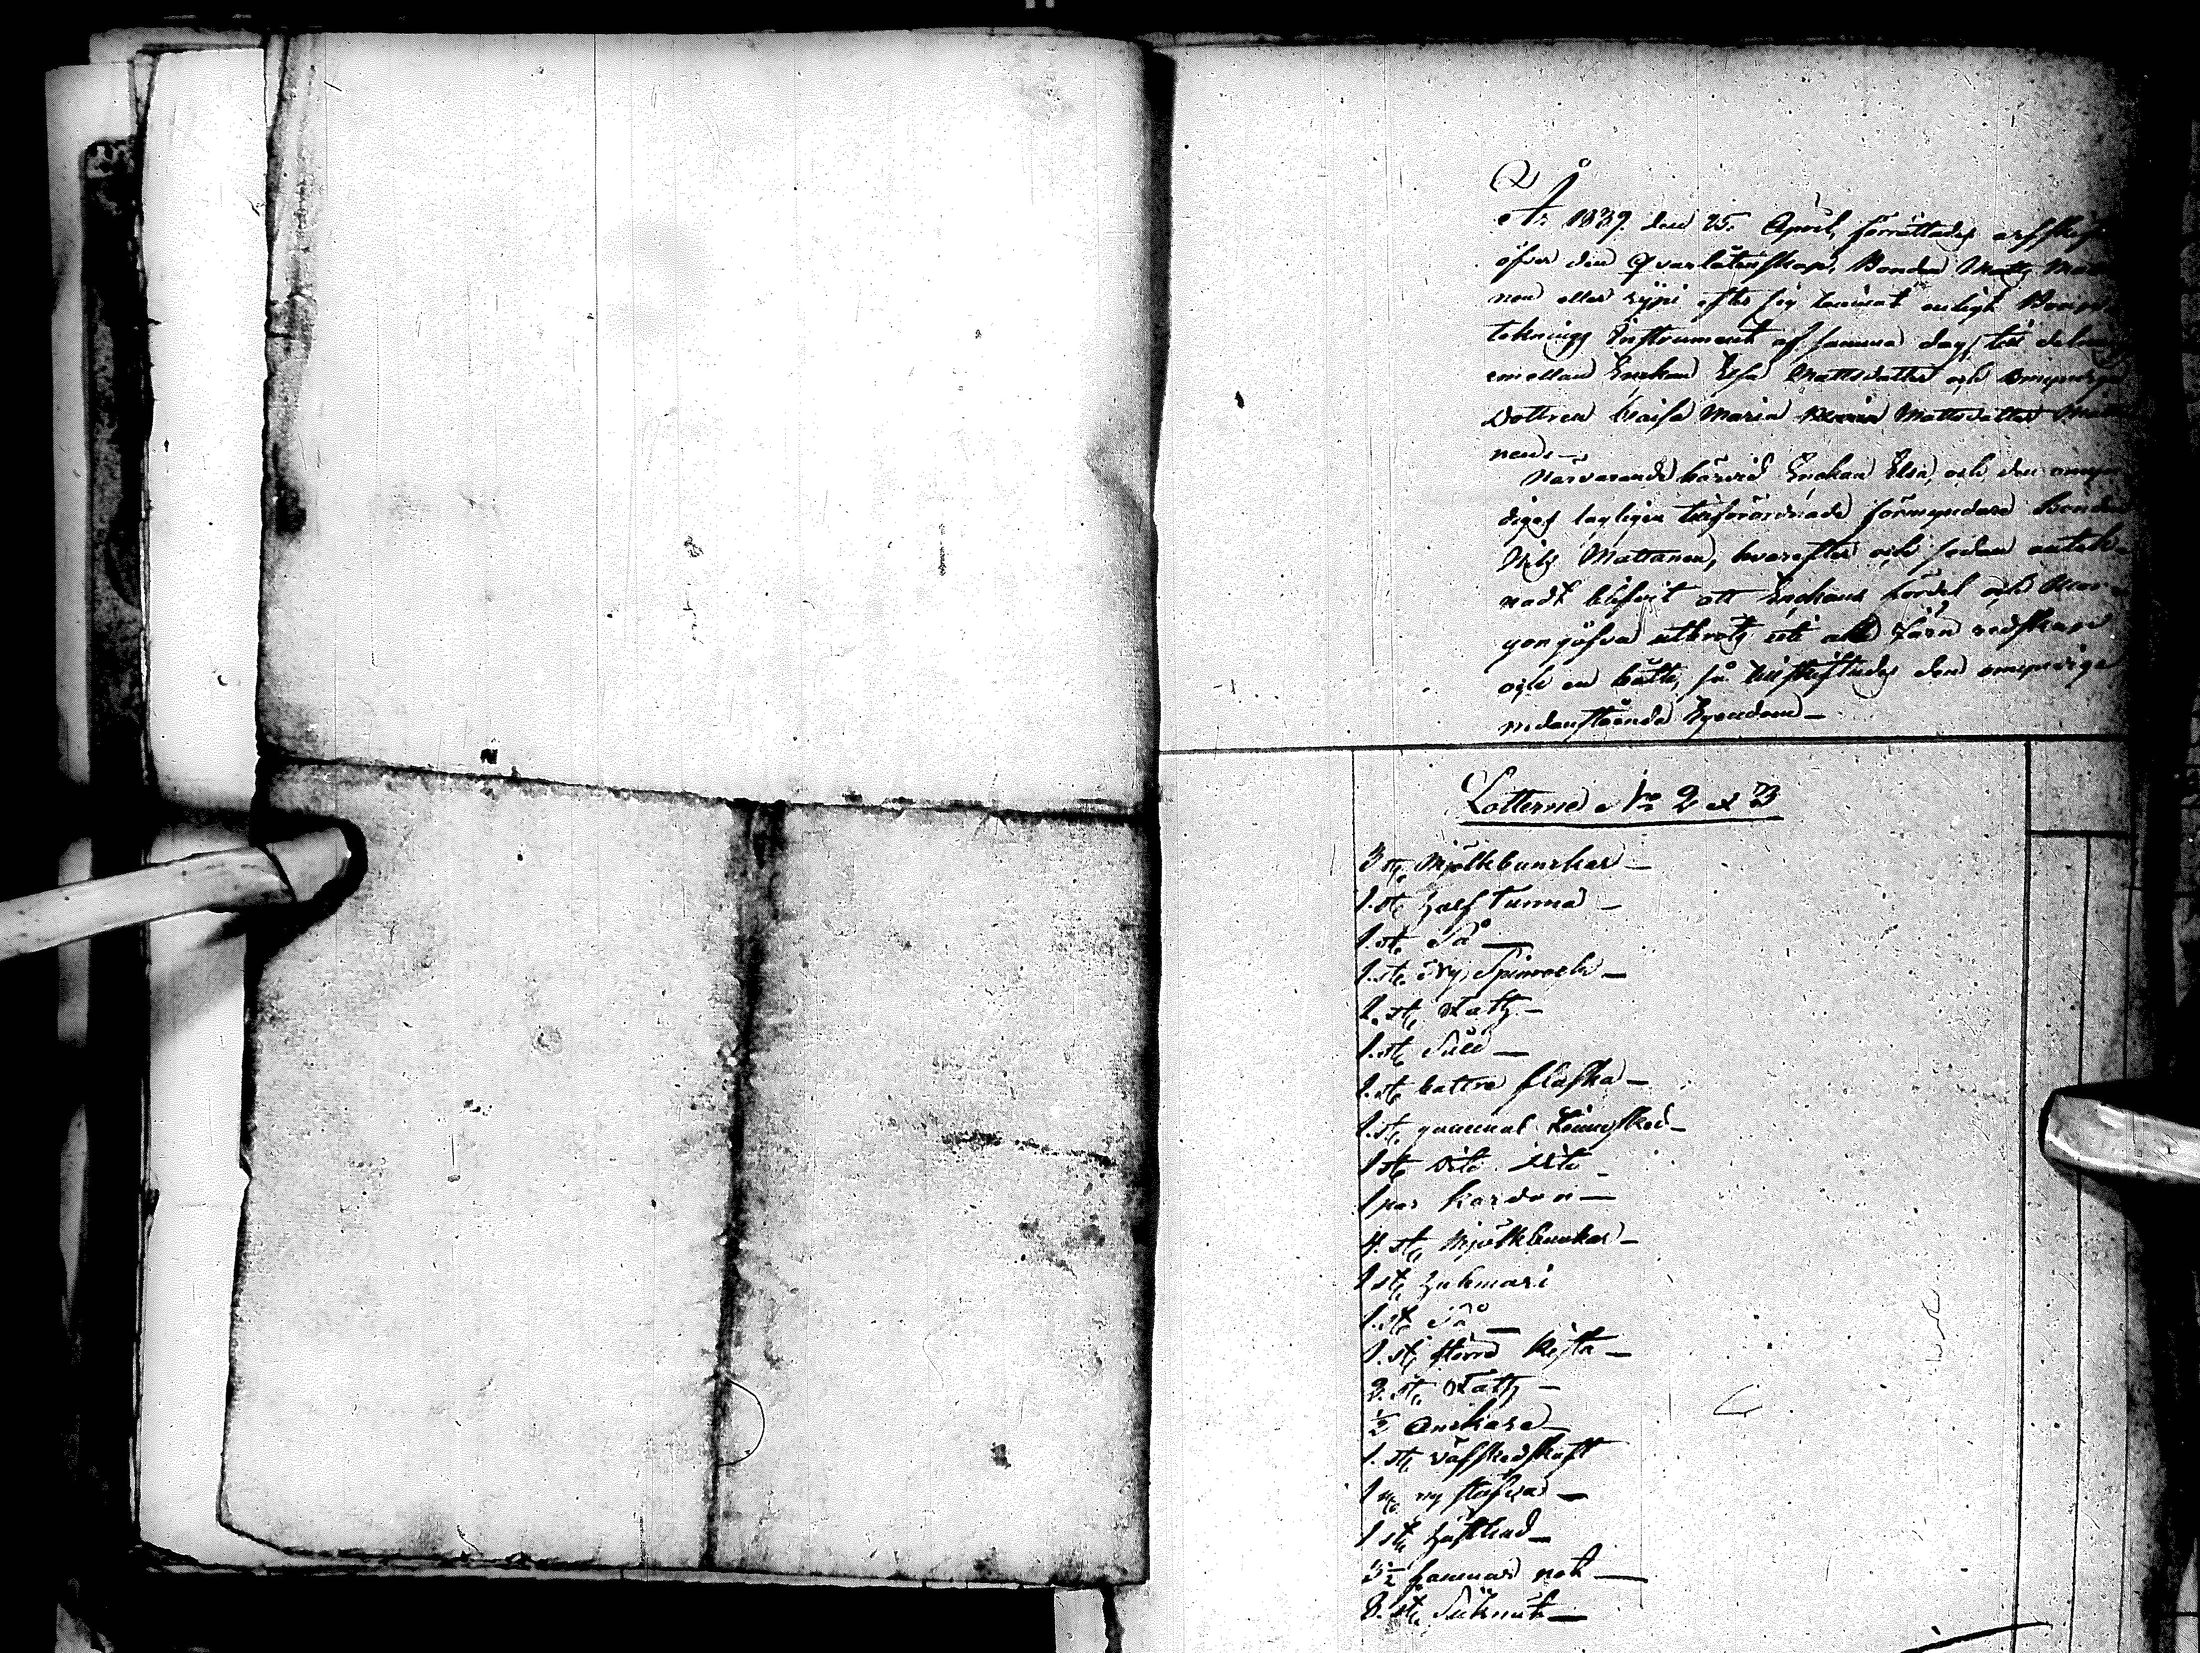 År 1839. den 25. April, förrättades arfskif
öfver den Qvarlåtenskap, Bonden Matts Matta
nen eller Sÿpi efter sig lemnat enligt Boupp
teknings Instrument af samma dag, till delning
emellan Enckan Elsa Mattsdotter och omyndiga
Dottren Caisa Maria Mattsdotter Matta
nen.
Närvarande härvid Enckan Elsa, och den omyn
diges lagligen tillförordnade förmyndare Bonden
Nils Mattanen, hvarefter och sedan antek-
nadt blifvit att Enckans fördel och Mor-
gongåfva utbrots uti allt Järn redskap
och en bått, så tillskiftades den omyndiga
nedanstående Egendom —
Lotterne No 2 et 3
3 st. Mjölkbunckar —
1. st. Half Tunna —
1. st. Så —
1. st. Ny Spinrock —
2. st. Fatt —
1. st. Såll —
1. st. battre flaska —
1. st. gammal Tennsked —
1 st. dito dito —
1 par kardor —
4. st. Mjölkbunckar —
1 st.
1. st. Så —
1. st. större Kista —
2. st. Fatt —
1/2 Anckare —
1. st. väfskedskaft
1 st. ny stäfva —
1 st.
3 1/2 famnar not —
2. st. Siknät —